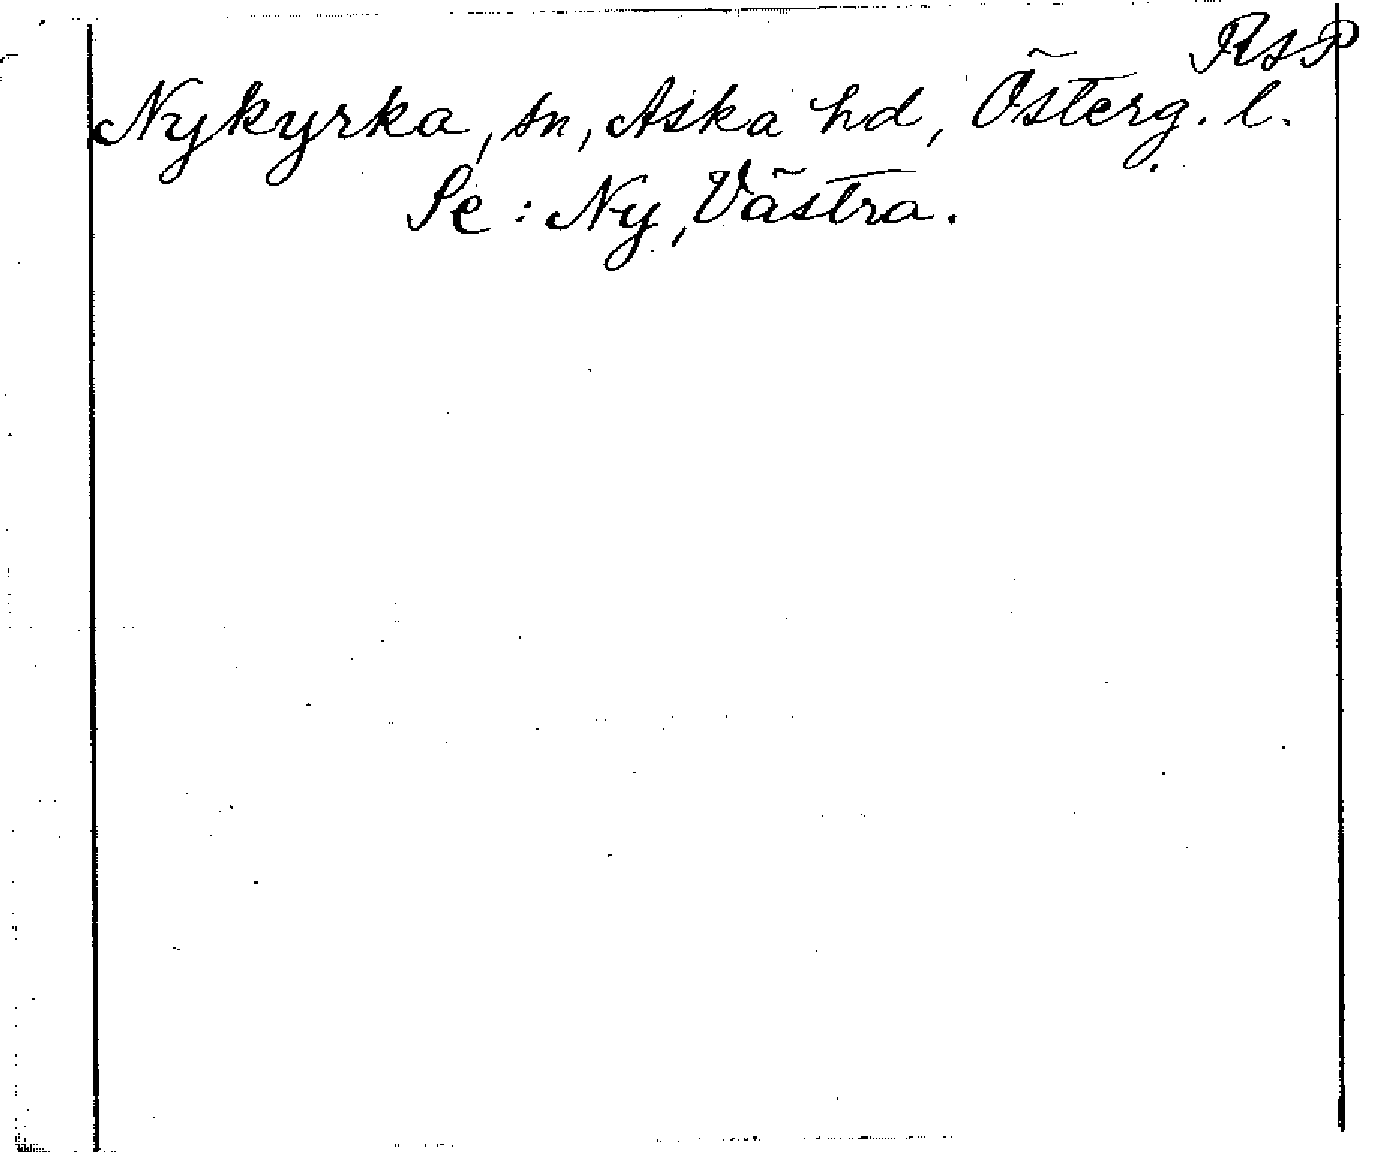 RSP
Nykyrka, sn, Aska hd, Österg. l.
Se: Ny, Västra.